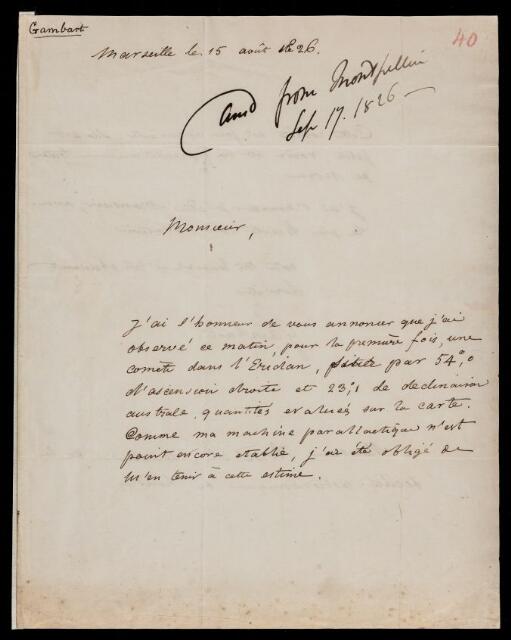 Gambart
40
Marseille le 15 août 1826.
from Montpellier
Sep 17. 1826
Monsieur,
J'ai l'honneur de vous annoncer que j'ai
observé ce matin, pour la première fois, une
comète dans l'Eridan, située par 54°,0
d'ascension droite et 23°,1 de declinaison
australe, quantités evaluées sur la carte.
Comme ma machine parallactique n'est
point encore etablie, j'ai été obligé de
m'en tenir à cette estime.